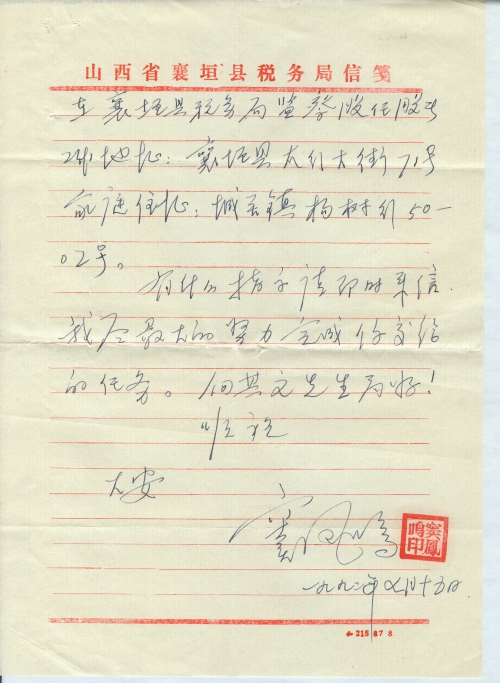 山西省襄垣县税务局信笺
在襄垣县税务局监察股任股长
址：襄垣县太行大街71号
家庭住址：城关镇杨树行50-
02号。
有什么指示请即时来信.
我尽最大的努力完成你交给
的任务。向其文先生问好！
顺祝
大安
窦凤鸣
窦凤鸣印
一九九二年七月十五日.
215 87 8